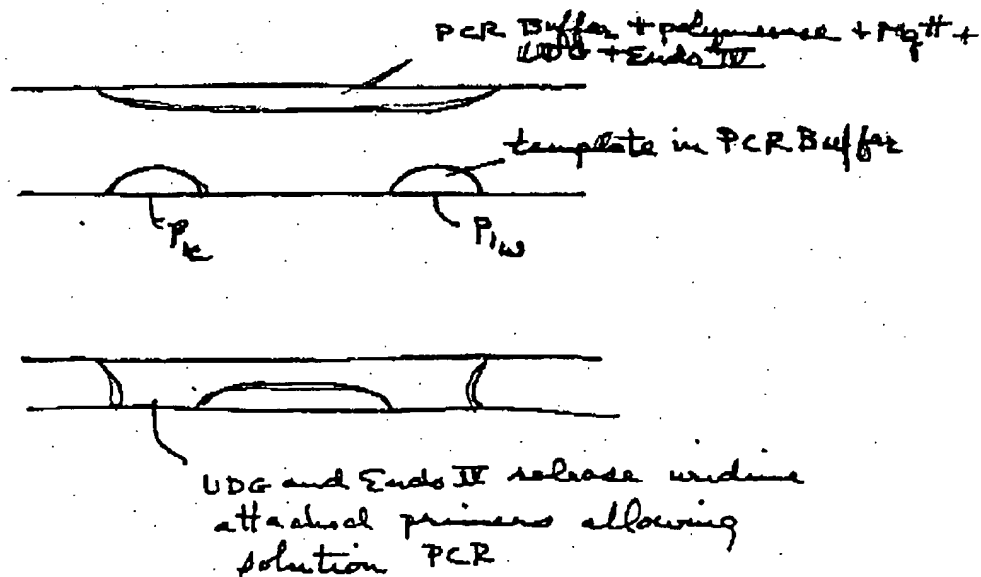 PCR Buffer + polymerase + Mg++ +
UDG + Endo IV
template in PCR Buffer
P
P
UDG and Endo IV release uridine
attached primers allowing
solution PCR